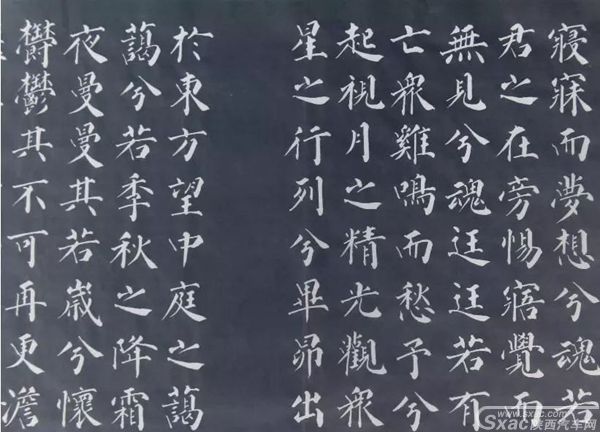 寢寐而夢想兮魂若
君之在旁惕寤覺而
無見兮魂迋迋若有
亡衆雞鳴而愁予兮
起視月之精光觀衆
星之行列兮畢昴出
於東方望中庭之藹
藹兮若季秋之降霜
夜曼曼其若歲兮懷
鬱鬱其不可再更澹
www.sxac.com
Sxac陕西汽车网